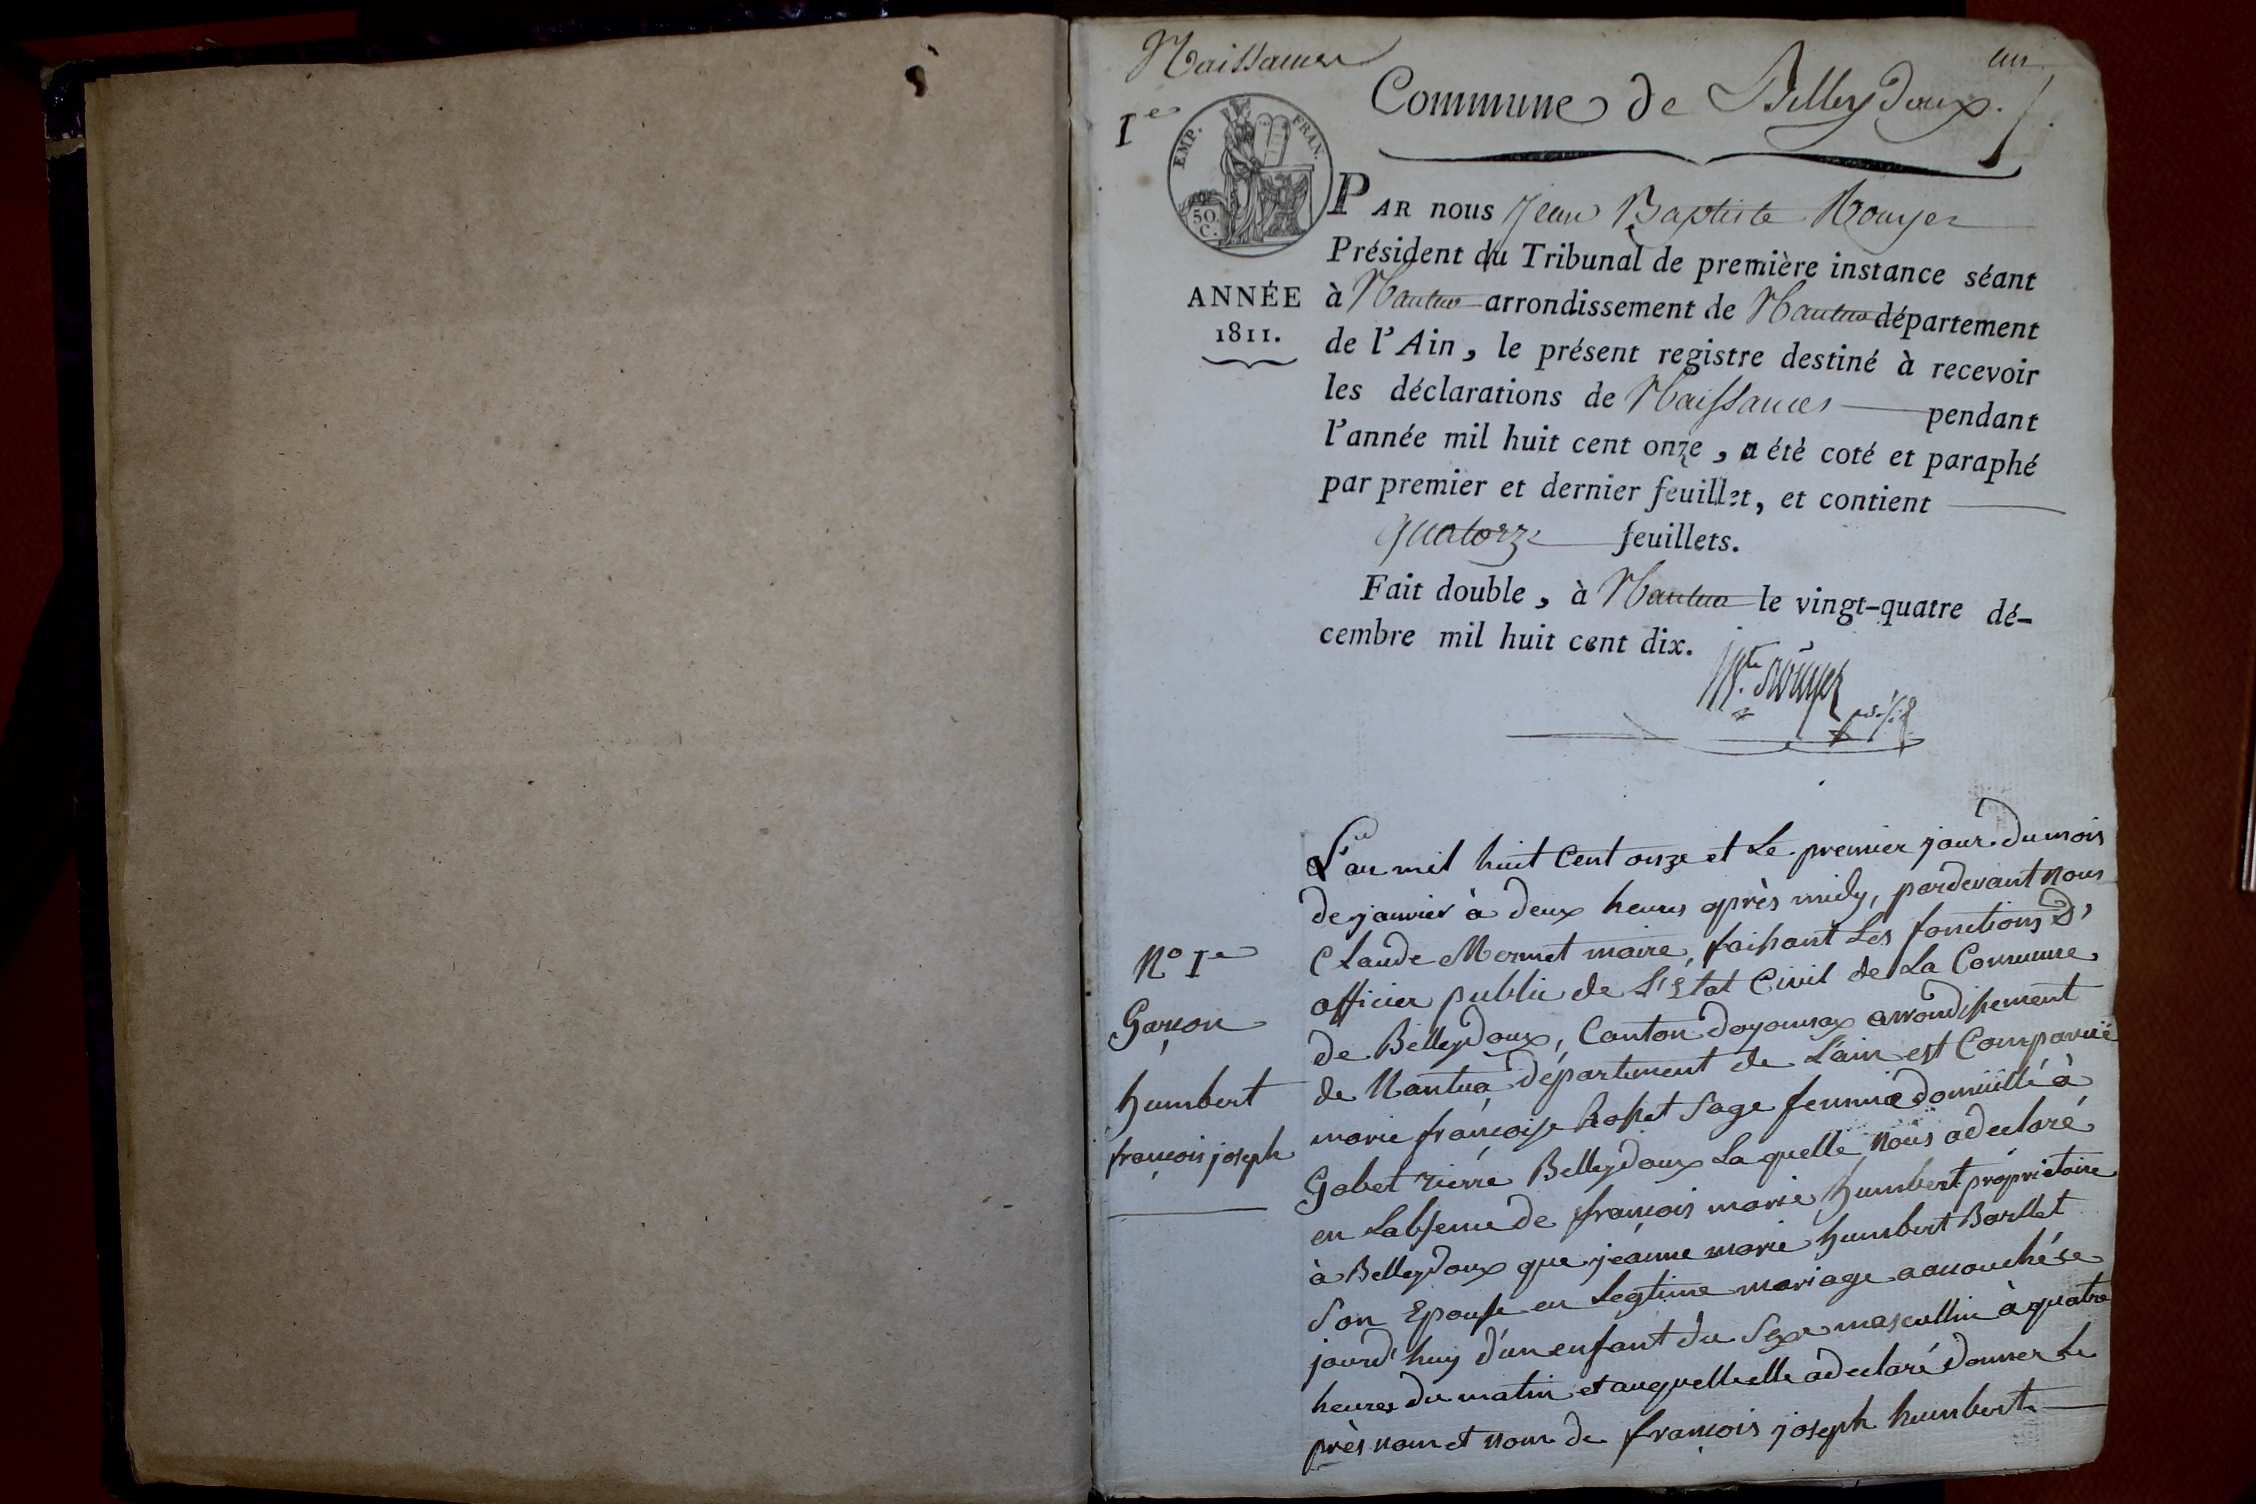 Naissances
un
Commune de Belleydoux.
1e
EMP. FRAN.
50.
C.
ANNÉE
1811.
PAR nous Jean Baptiste Rouyer
Président du Tribunal de première instance séant
à Nantua arrondissement de Nantua département
de l'Ain, le présent registre destiné à recevoir
les déclarations de Naissances pendant
l'année mil huit cent onze, a été coté et paraphé
par premier et dernier feuillet, et contient
quatorze feuillets.
Fait double, à Nantua le vingt-quatre dé-
cembre mil huit cent dix.
Rouyer
L'an mil huit Cent onze et Le premier jour du mois
de janvier à deux heures après midy, pardevant nous
Claude Mermet maire, faisant Les fonctions d'
officier public de L'état Civil de La Commune
de Belleydoux, Canton doyonnax arrondissement
de Nantua département de L'ain est Comparüe
marie françoise Rosset Sage femme domicillé à
Gobet rierre Belleydoux La quelle nous a declaré
en Labsence de françois marie humbert propriétaire
à Belleydoux que jeanne marie humbert Barllet
Son Epouse en Legtime mariage a acouché ce
jourd'huy d'un enfant du Sexe mascullin à quatre
heures du matin et auquelle elle a declaré donner Le
près nom et nom de françois joseph humbert
No 1e
Garçon
humbert
françois joseph